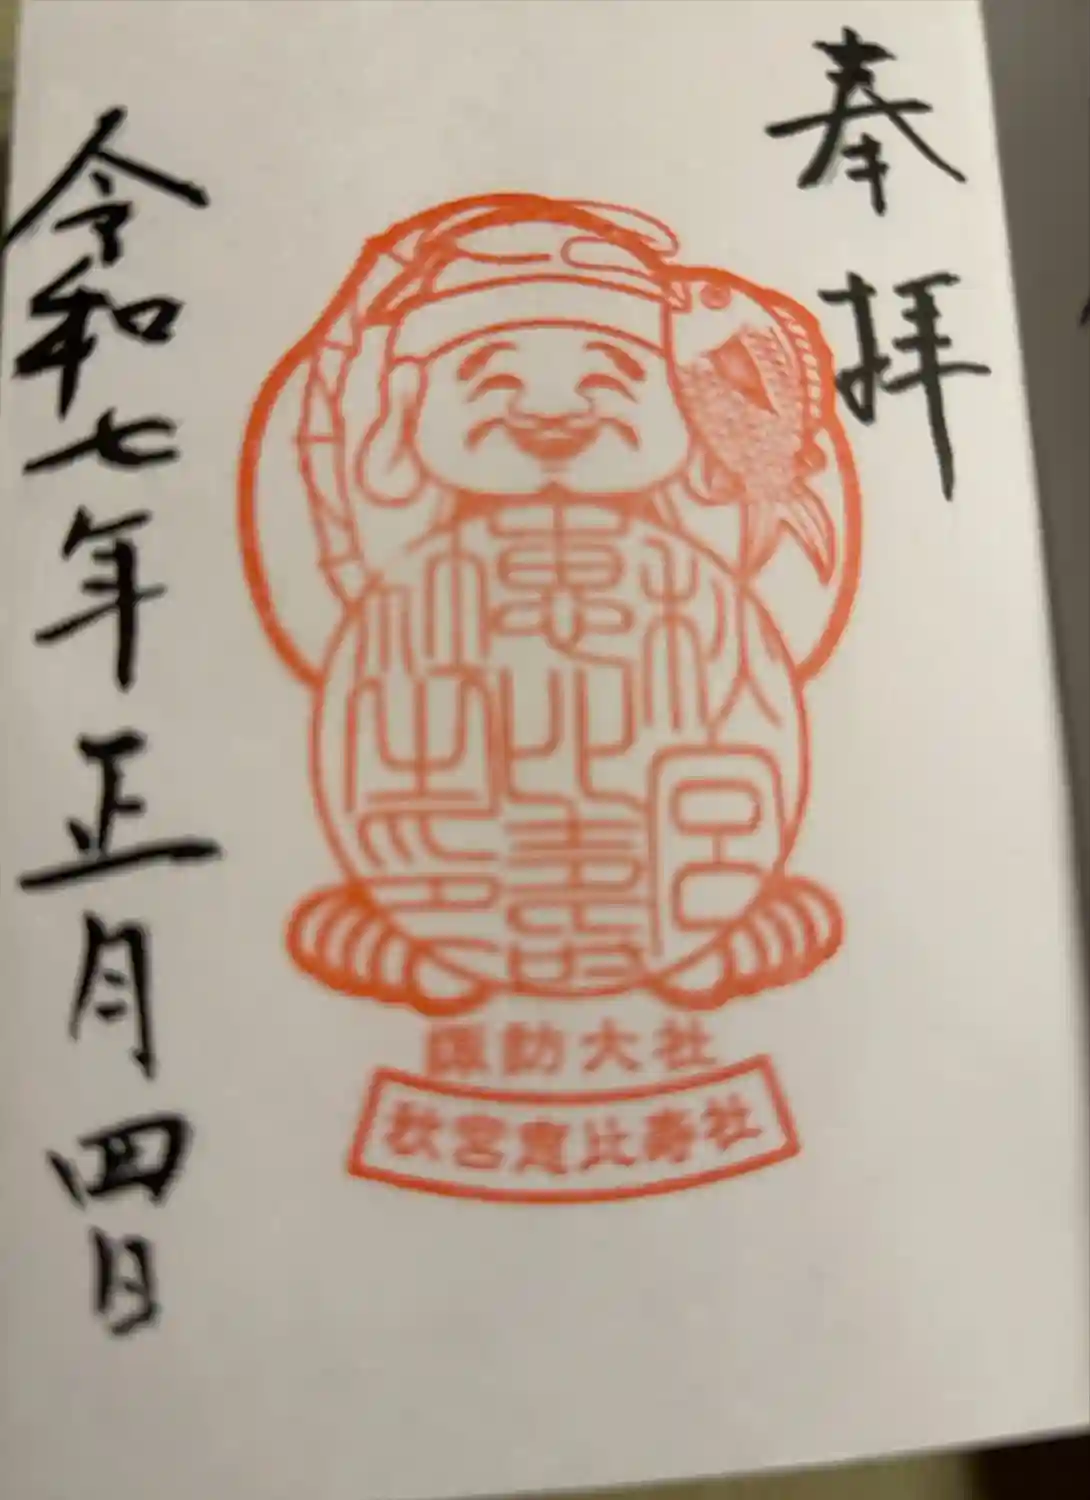 奉拝
秋宮
恵比寿
神社之印
諏訪大社
秋宮恵比寿社
令和七年正月四日